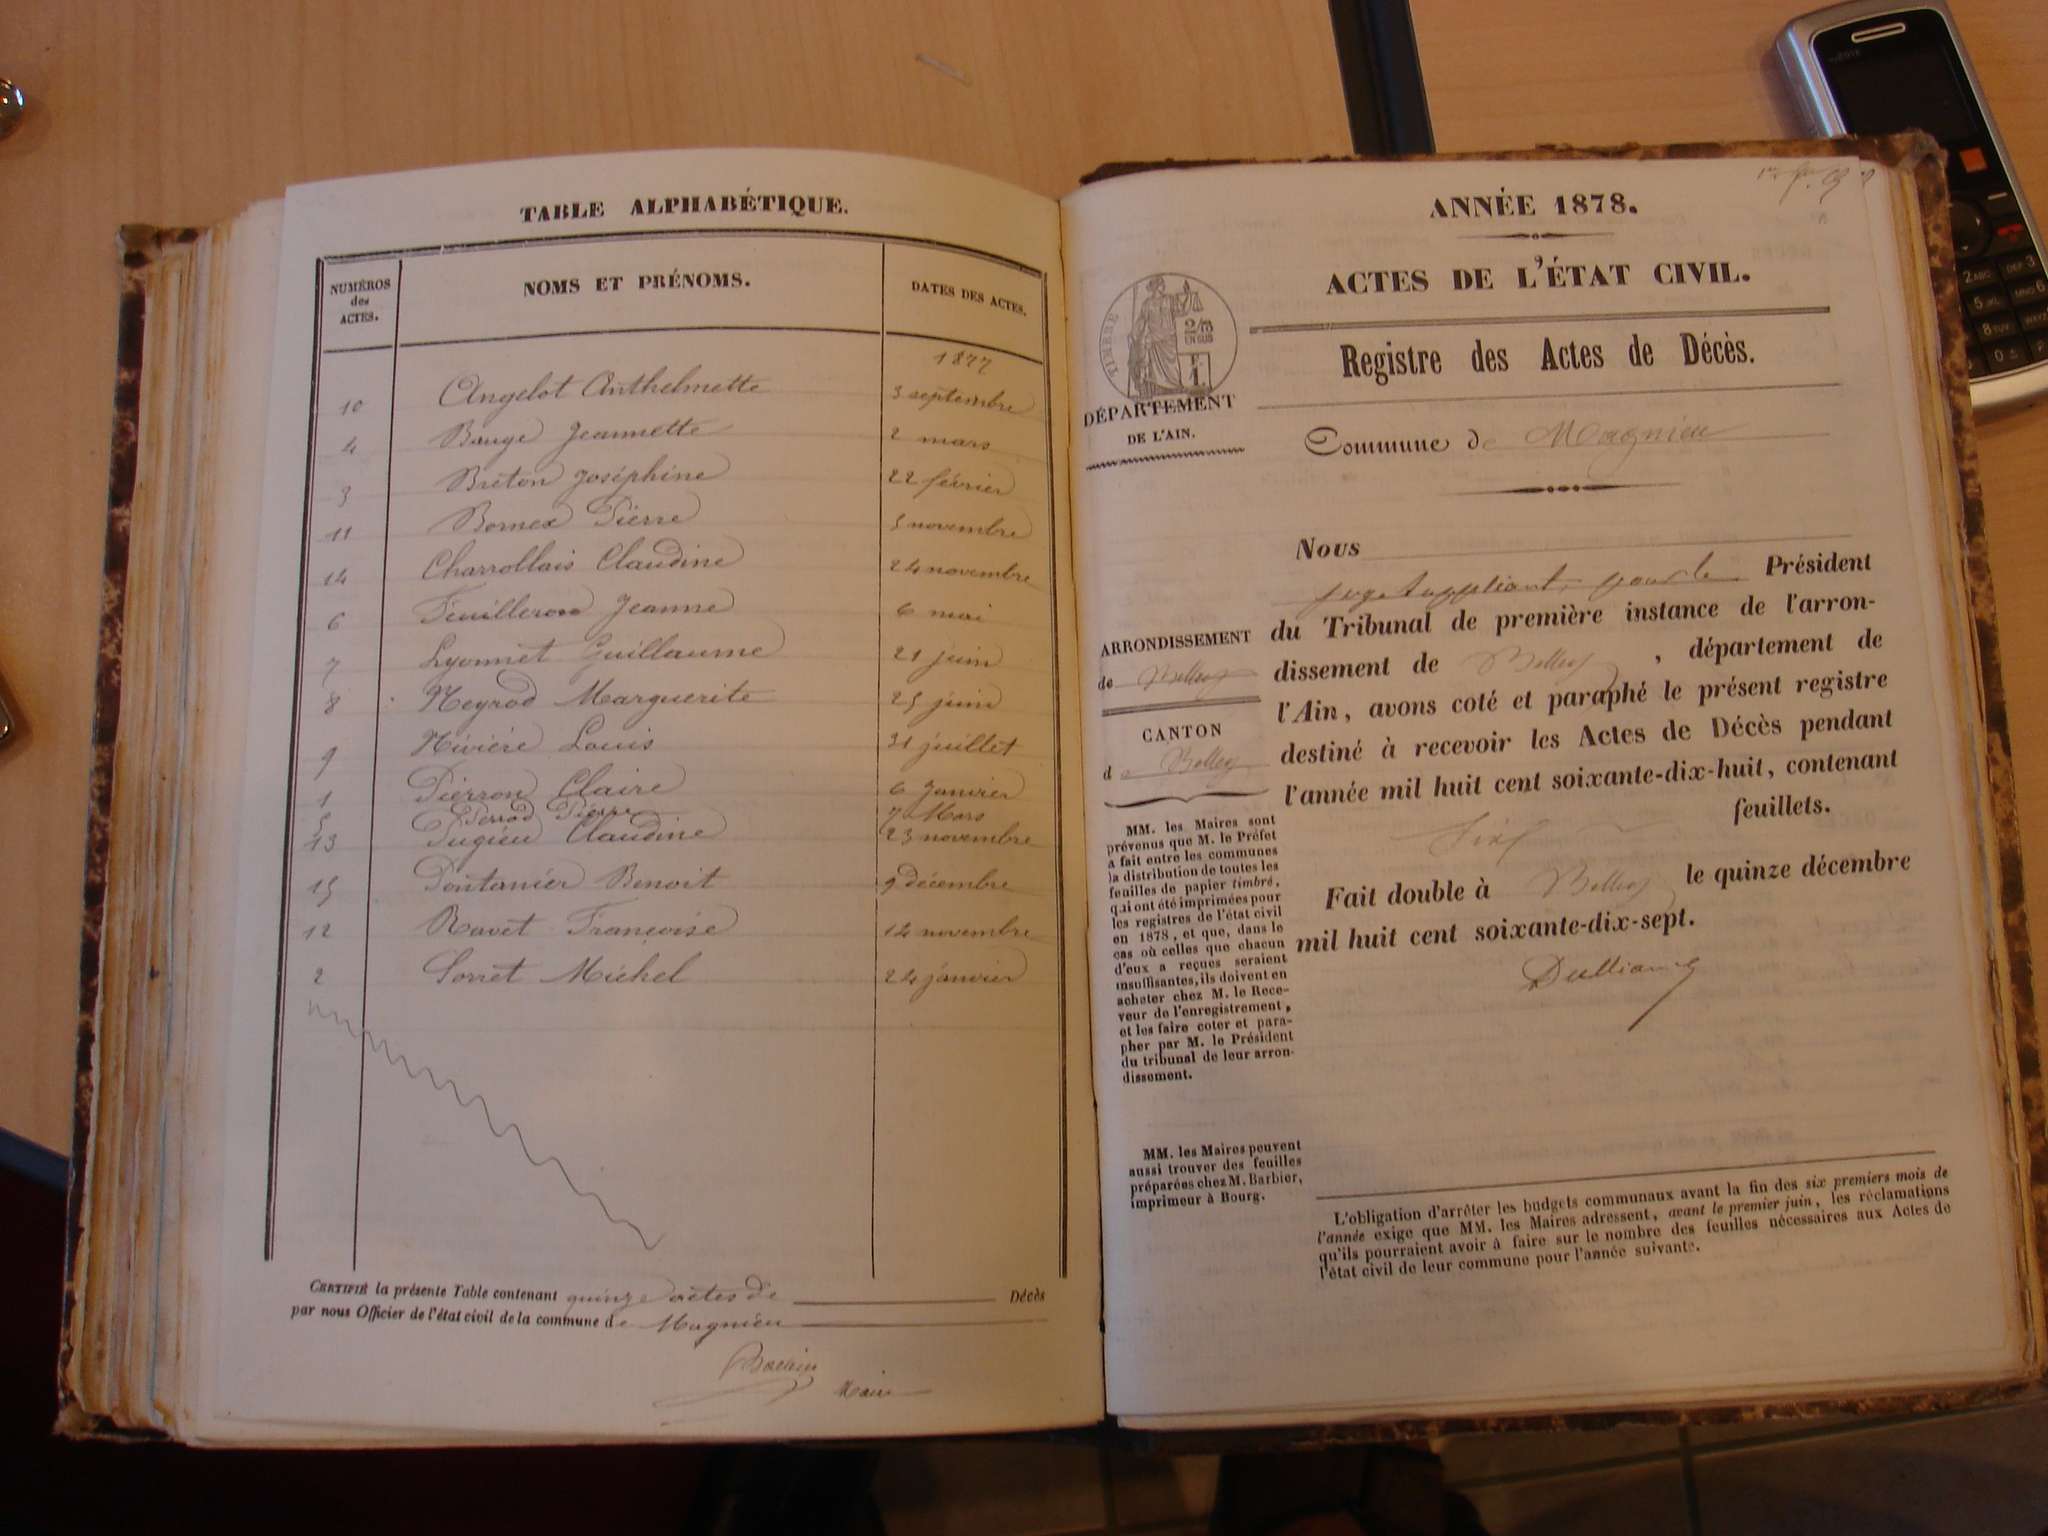 TABLE ALPHABÉTIQUE.
NUMÉROS
des
ACTES.
NOMS ET PRÉNOMS.
DATES DES ACTES.
1877
10 Angelot Anthelmette 3 septembre
4 Bauge Jeannette 2 mars
3 Breton Joséphine 22 février
11 Bornex Pierre 5 novembre
14 Charrollais Claudine 24 novembre
6 Feuilleron Jeanne 6 mai
7 Lyonnet Guillaume 21 juin
8 Neyrod Marguerite 25 juin
9 Nivière Louis 31 juillet
1 Pierron Claire 6 Janvier
5 Perrod Pierre 7 Mars
13 Pugieu Claudine 23 novembre
15 Pontanier Benoit 9 décembre
12 Ravet Françoise 14 novembre
2 Sorret Michel 24 janvier
CERTIFIÉ la présente Table contenant quinze actes de Décès
par nous Officier de l'état civil de la commune de Magnieu
Maire
ANNÉE 1878.
ACTES DE L'ÉTAT CIVIL.
TIMBRE
2/10
EN SUS
Registre des Actes de Décès.
DÉPARTEMENT
DE L'AIN.
Commune de Magnieu
Nous
juge suppléant, pour le Président
du Tribunal de première instance de l'arron-
dissement de Belley, département de
l'Ain, avons coté et paraphé le présent registre
destiné à recevoir les Actes de Décès pendant
l'année mil huit cent soixante-dix-huit, contenant
Six feuillets.
Fait double à Belley le quinze décembre
mil huit cent soixante-dix-sept.
ARRONDISSEMENT
de Belley
CANTON
de Belley
MM. les Maires sont
prévenus que M. le Préfet
a fait entre les communes
la distribution de toutes les
feuilles de papier timbré,
qui ont été imprimées pour
les registres de l'état civil
en 1878, et que, dans le
cas où celles que chacun
d'eux a reçues seraient
insuffisantes, ils doivent en
acheter chez M. le Rece-
veur de l'enregistrement,
et les faire coter et para-
pher par M. le Président
du tribunal de leur arron-
dissement.
MM. les Maires peuvent
aussi trouver des feuilles
préparées chez M. Barbier,
imprimeur à Bourg.
L'obligation d'arrêter les budgets communaux avant la fin des six premiers mois de
l'année exige que MM. les Maires adressent, avant le premier juin, les réclamations
qu'ils pourraient avoir à faire sur le nombre des feuilles nécessaires aux Actes de
l'état civil de leur commune pour l'année suivante.